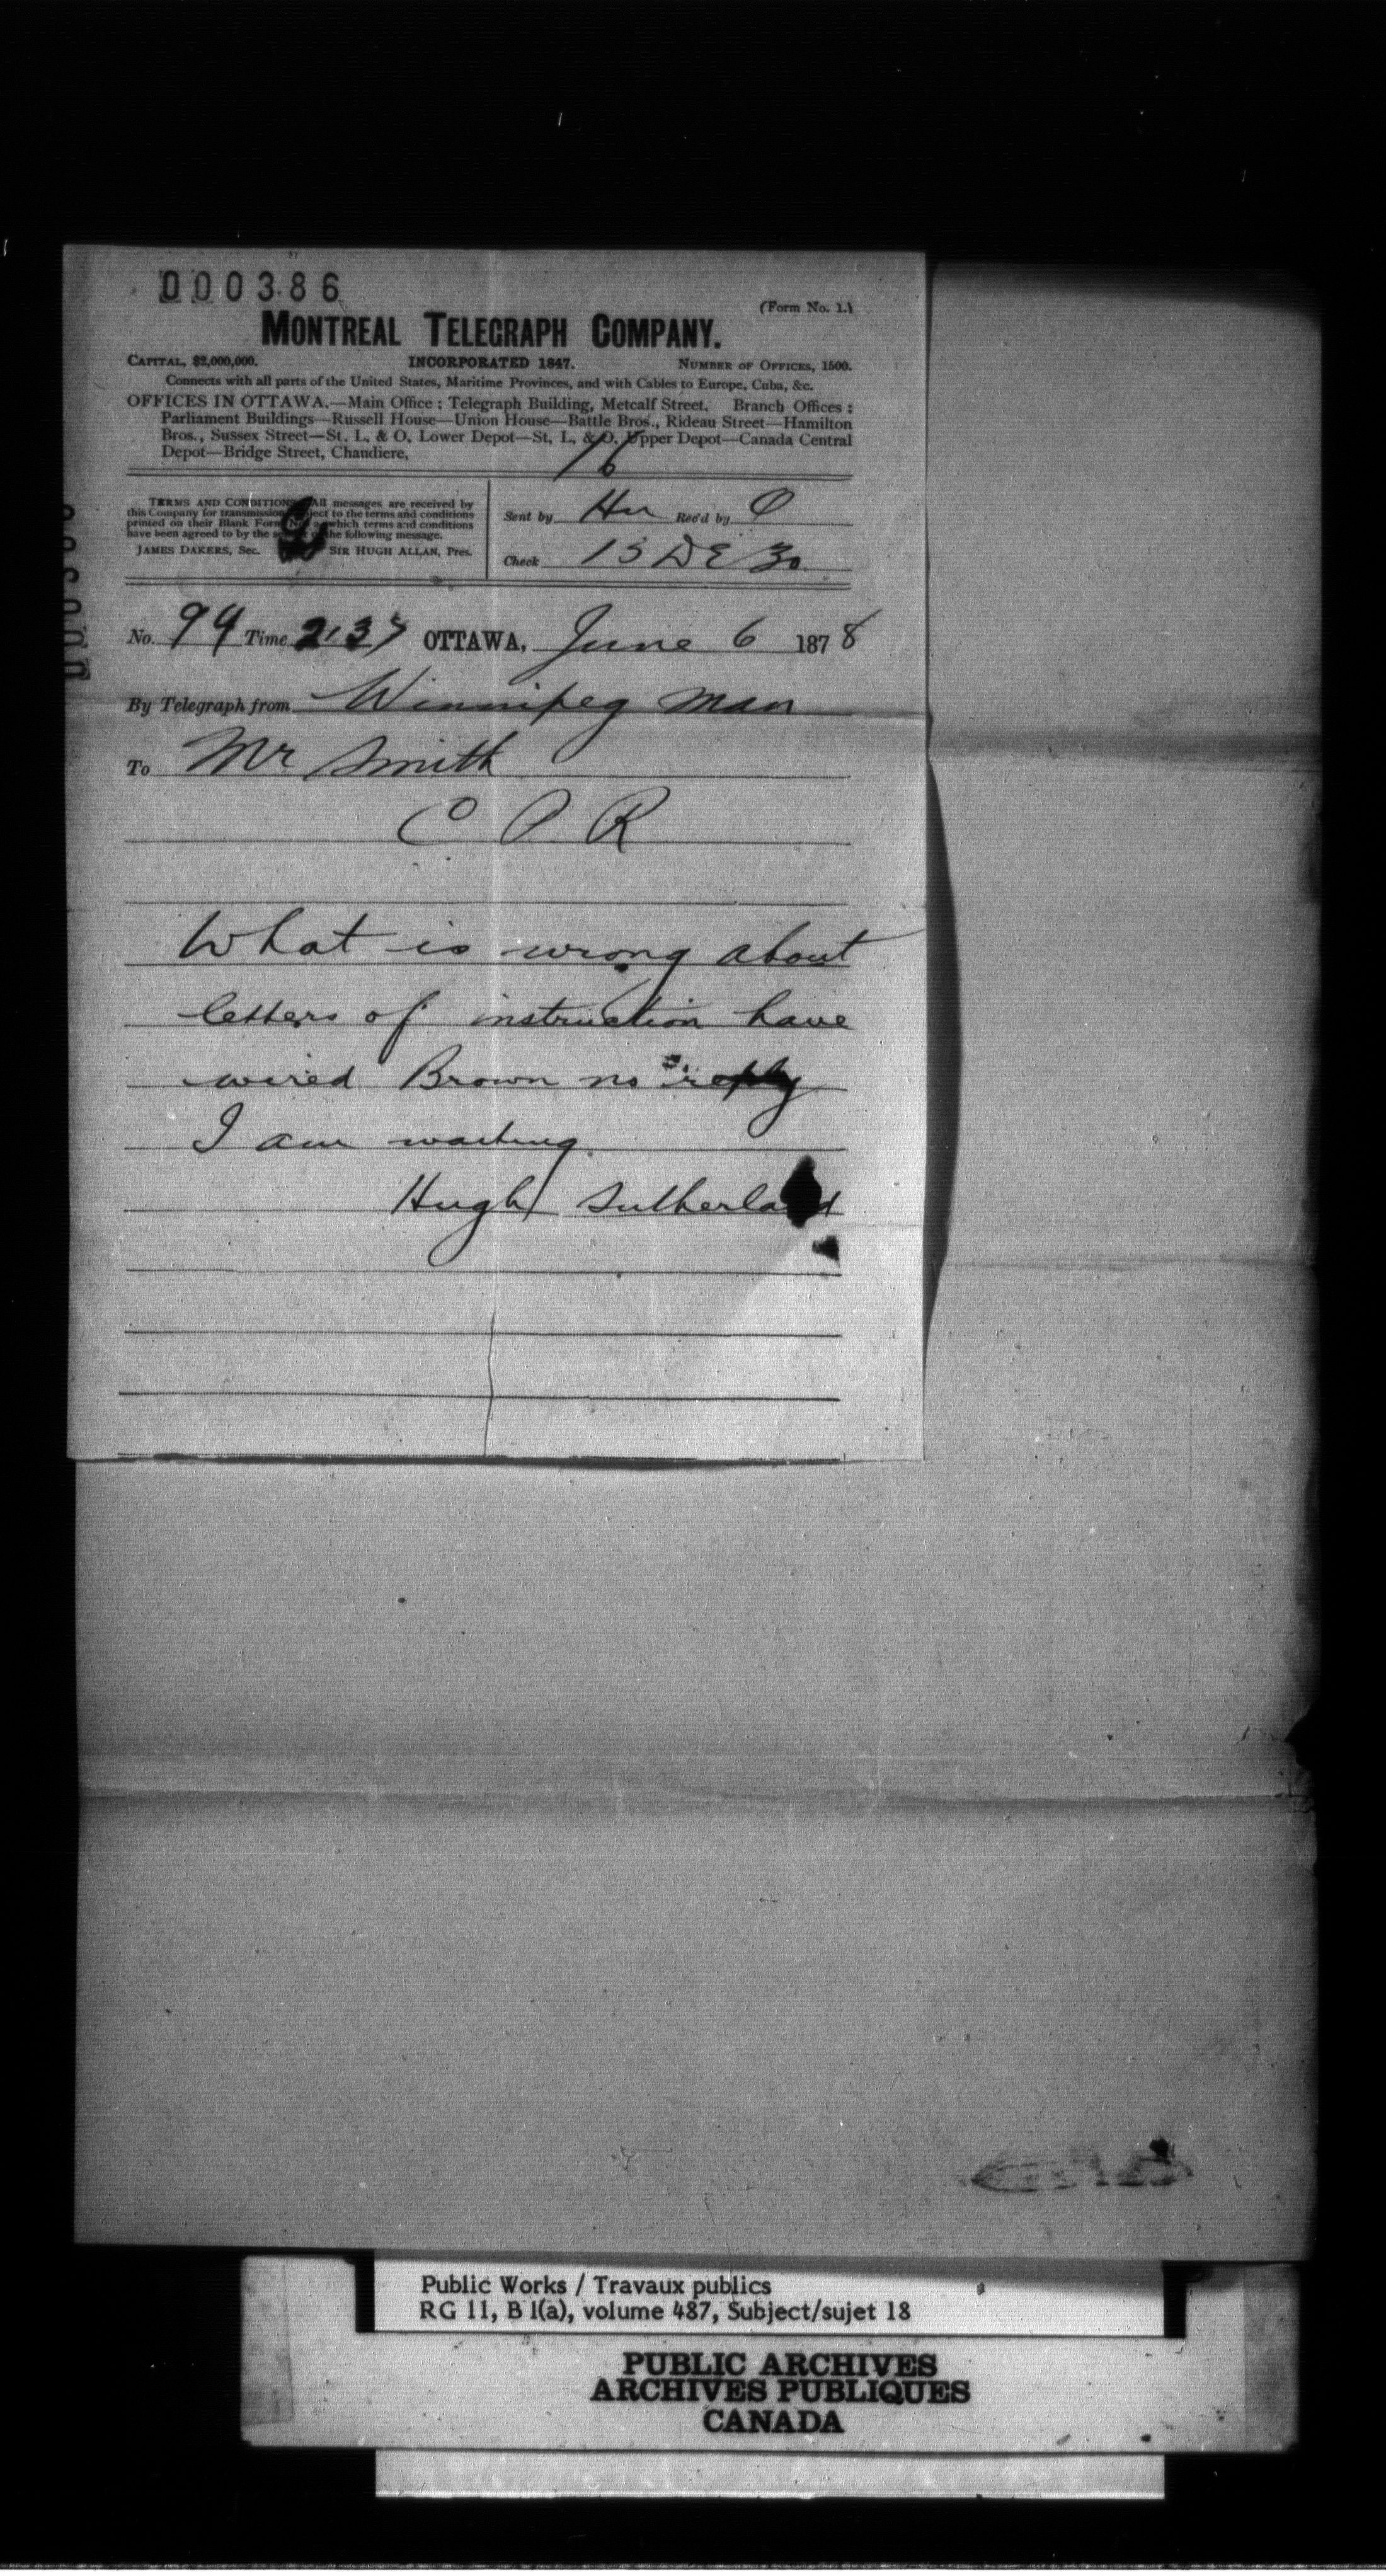 000386
(Form No. 1.)
MONTREAL TELEGRAPH COMPANY.
CAPITAL, $2,000,000. INCORPORATED 1847. NUMBER OF OFFICES, 1500.
Connects with all parts of the United States, Maritime Provinces, and with Cables to Europe, Cuba, &c.
OFFICES IN OTTAWA.—Main Office ; Telegraph Building, Metcalf Street. Branch Offices ;
Parliament Buildings—Russell House—Union House—Battle Bros., Rideau Street—Hamilton
Bros., Sussex Street—St. L. & O. Lower Depot—St. L. & O. Upper Depot—Canada Central
Depot—Bridge Street, Chaudiere,
16
TERMS AND CONDITIONS All messages are received by
this Company for transmission subject to the terms and conditions
printed on their Blank Form No. 2, which terms and conditions
have been agreed to by the sender of the following message.
JAMES DAKERS, Sec. SIR HUGH ALLAN, Pres.
Sent by Hu Rec'd by O
Check 13 DE 30
No. 94 Time 2.37 OTTAWA, June 6 1878
By Telegraph from Winnipeg Man
To Mr Smith
C P R
What is wrong about
letters of instruction have
wired Brown no reply
I am waiting
Hugh Sutherland
Public Works / Travaux publics
RG 11, B 1(a), volume 487, Subject/sujet 18
PUBLIC ARCHIVES
ARCHIVES PUBLIQUES
CANADA